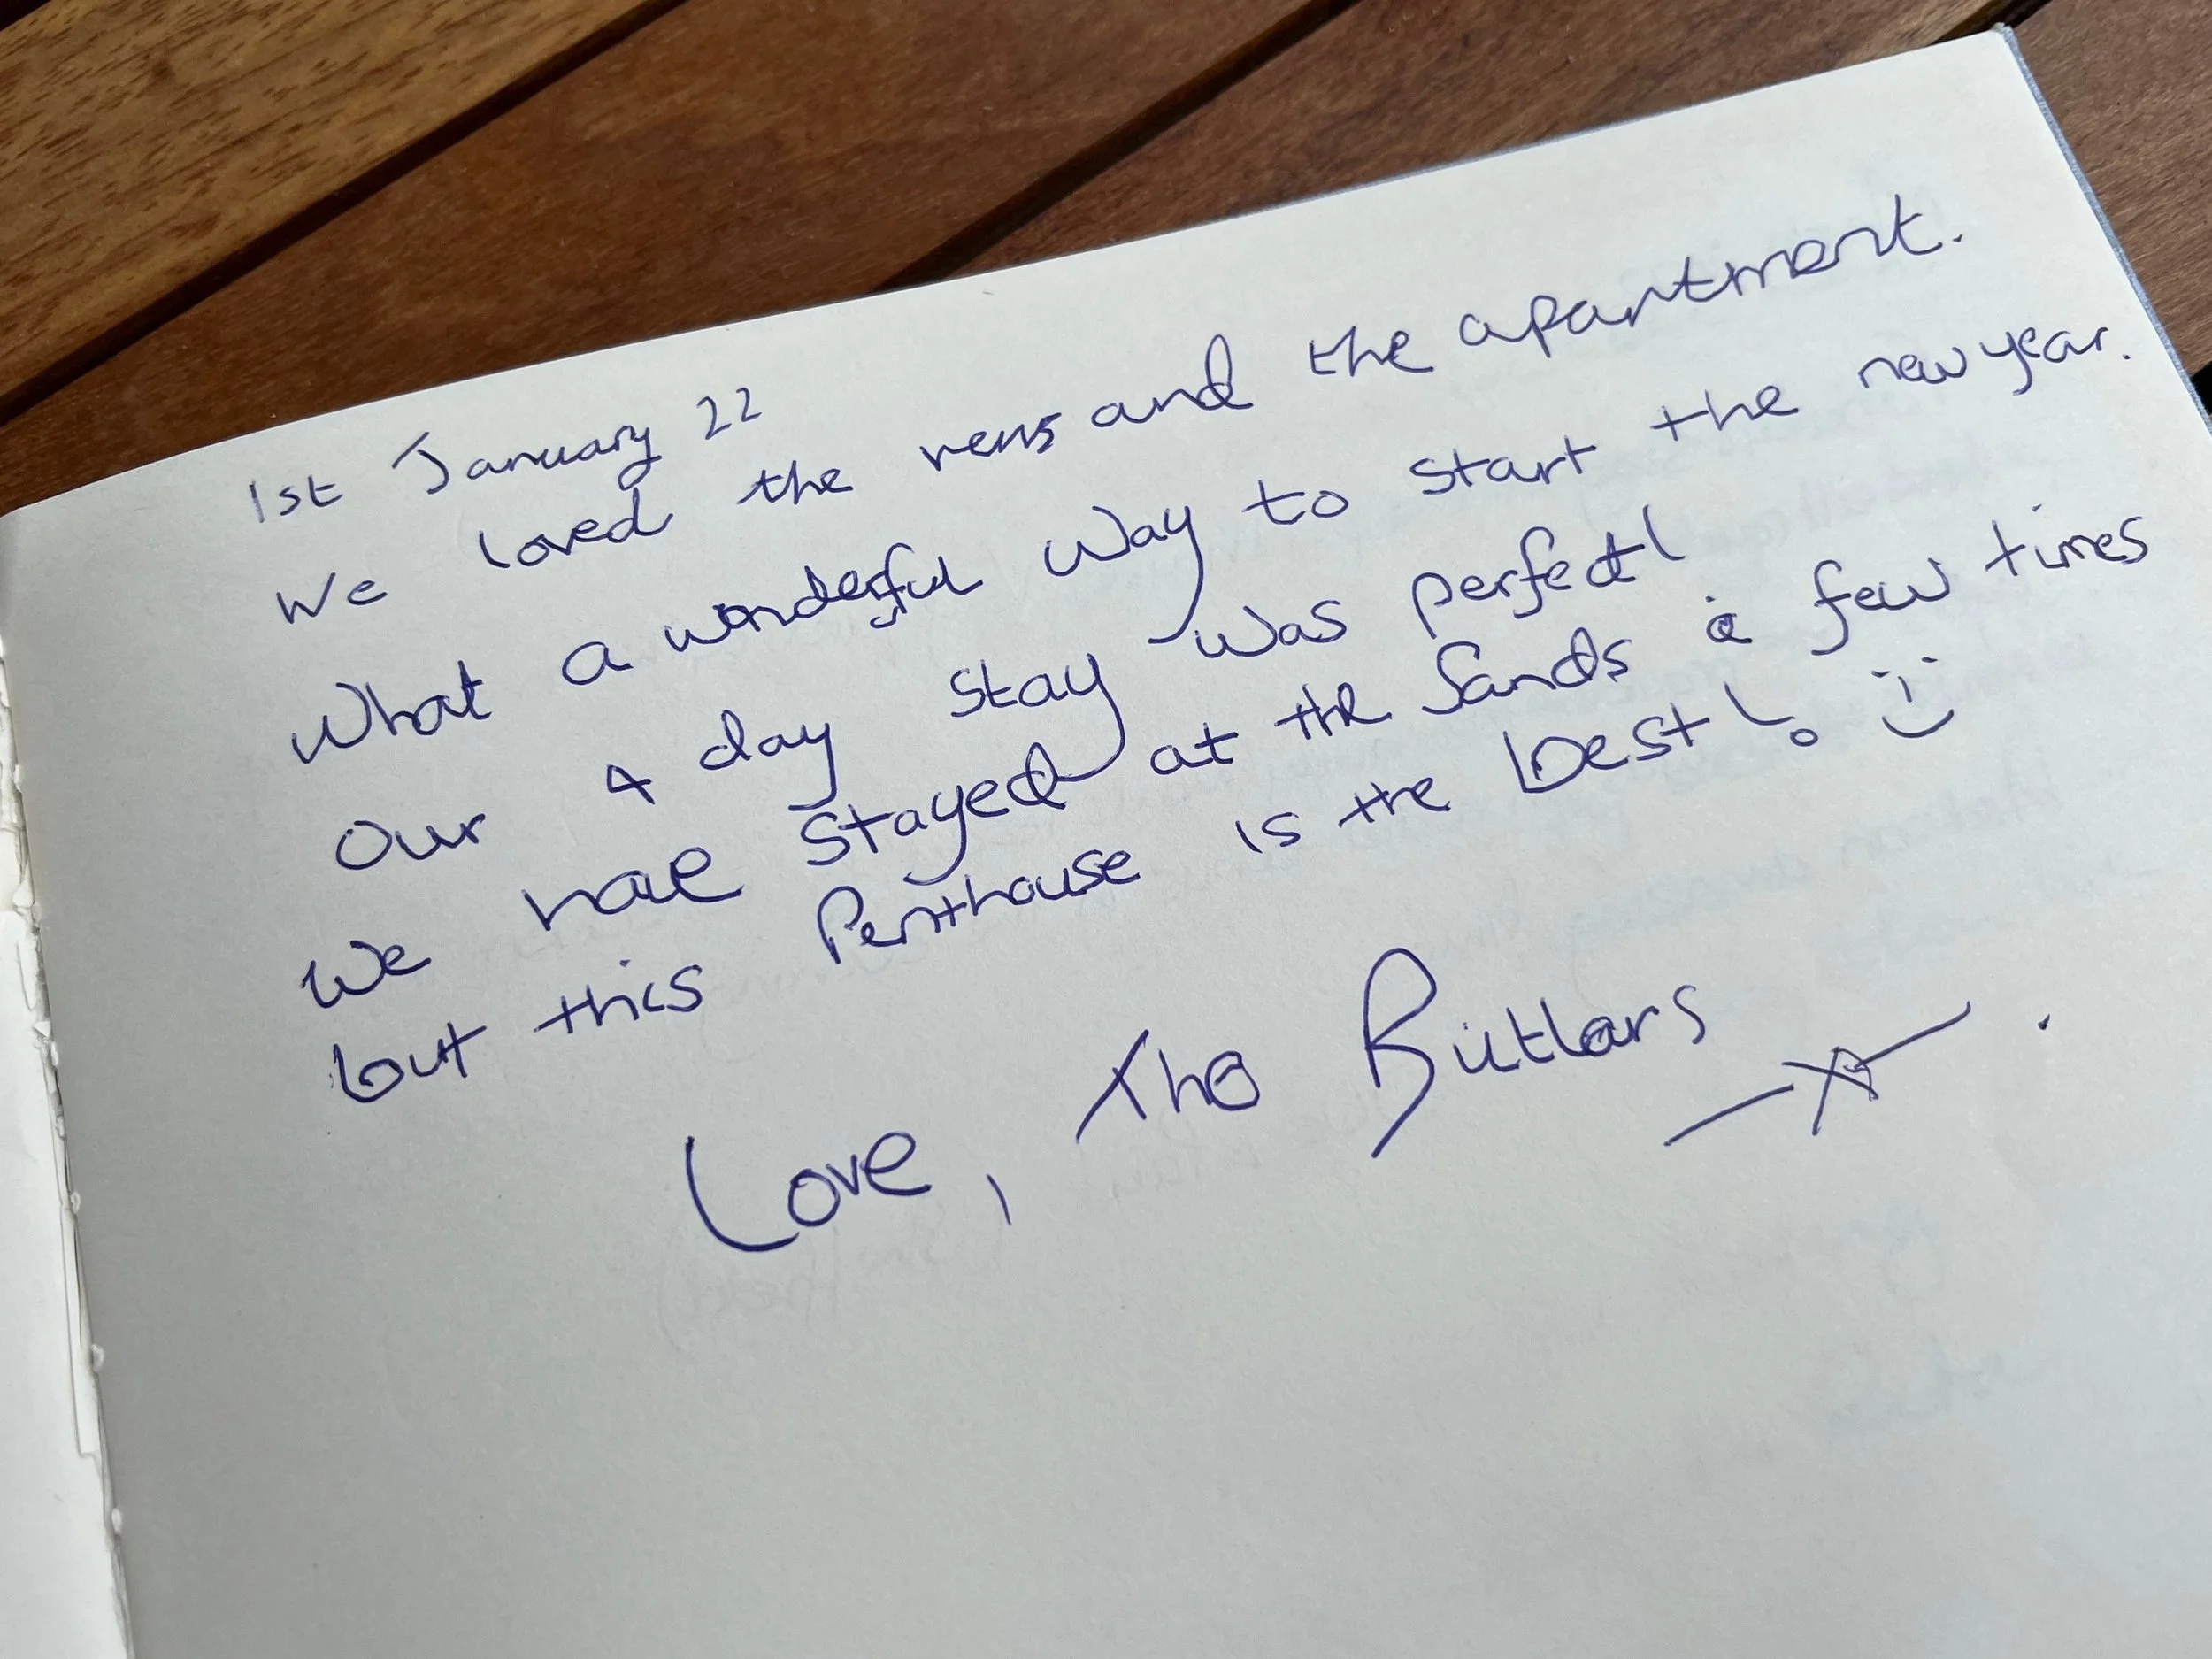 1st January 22
We loved the views and the apartment.
What a wonderful way to start the new year.
Our 4 day stay was perfect!
We have stayed at the Sands a few times
but this Penthouse is the best! :)
Love, The Butlers x